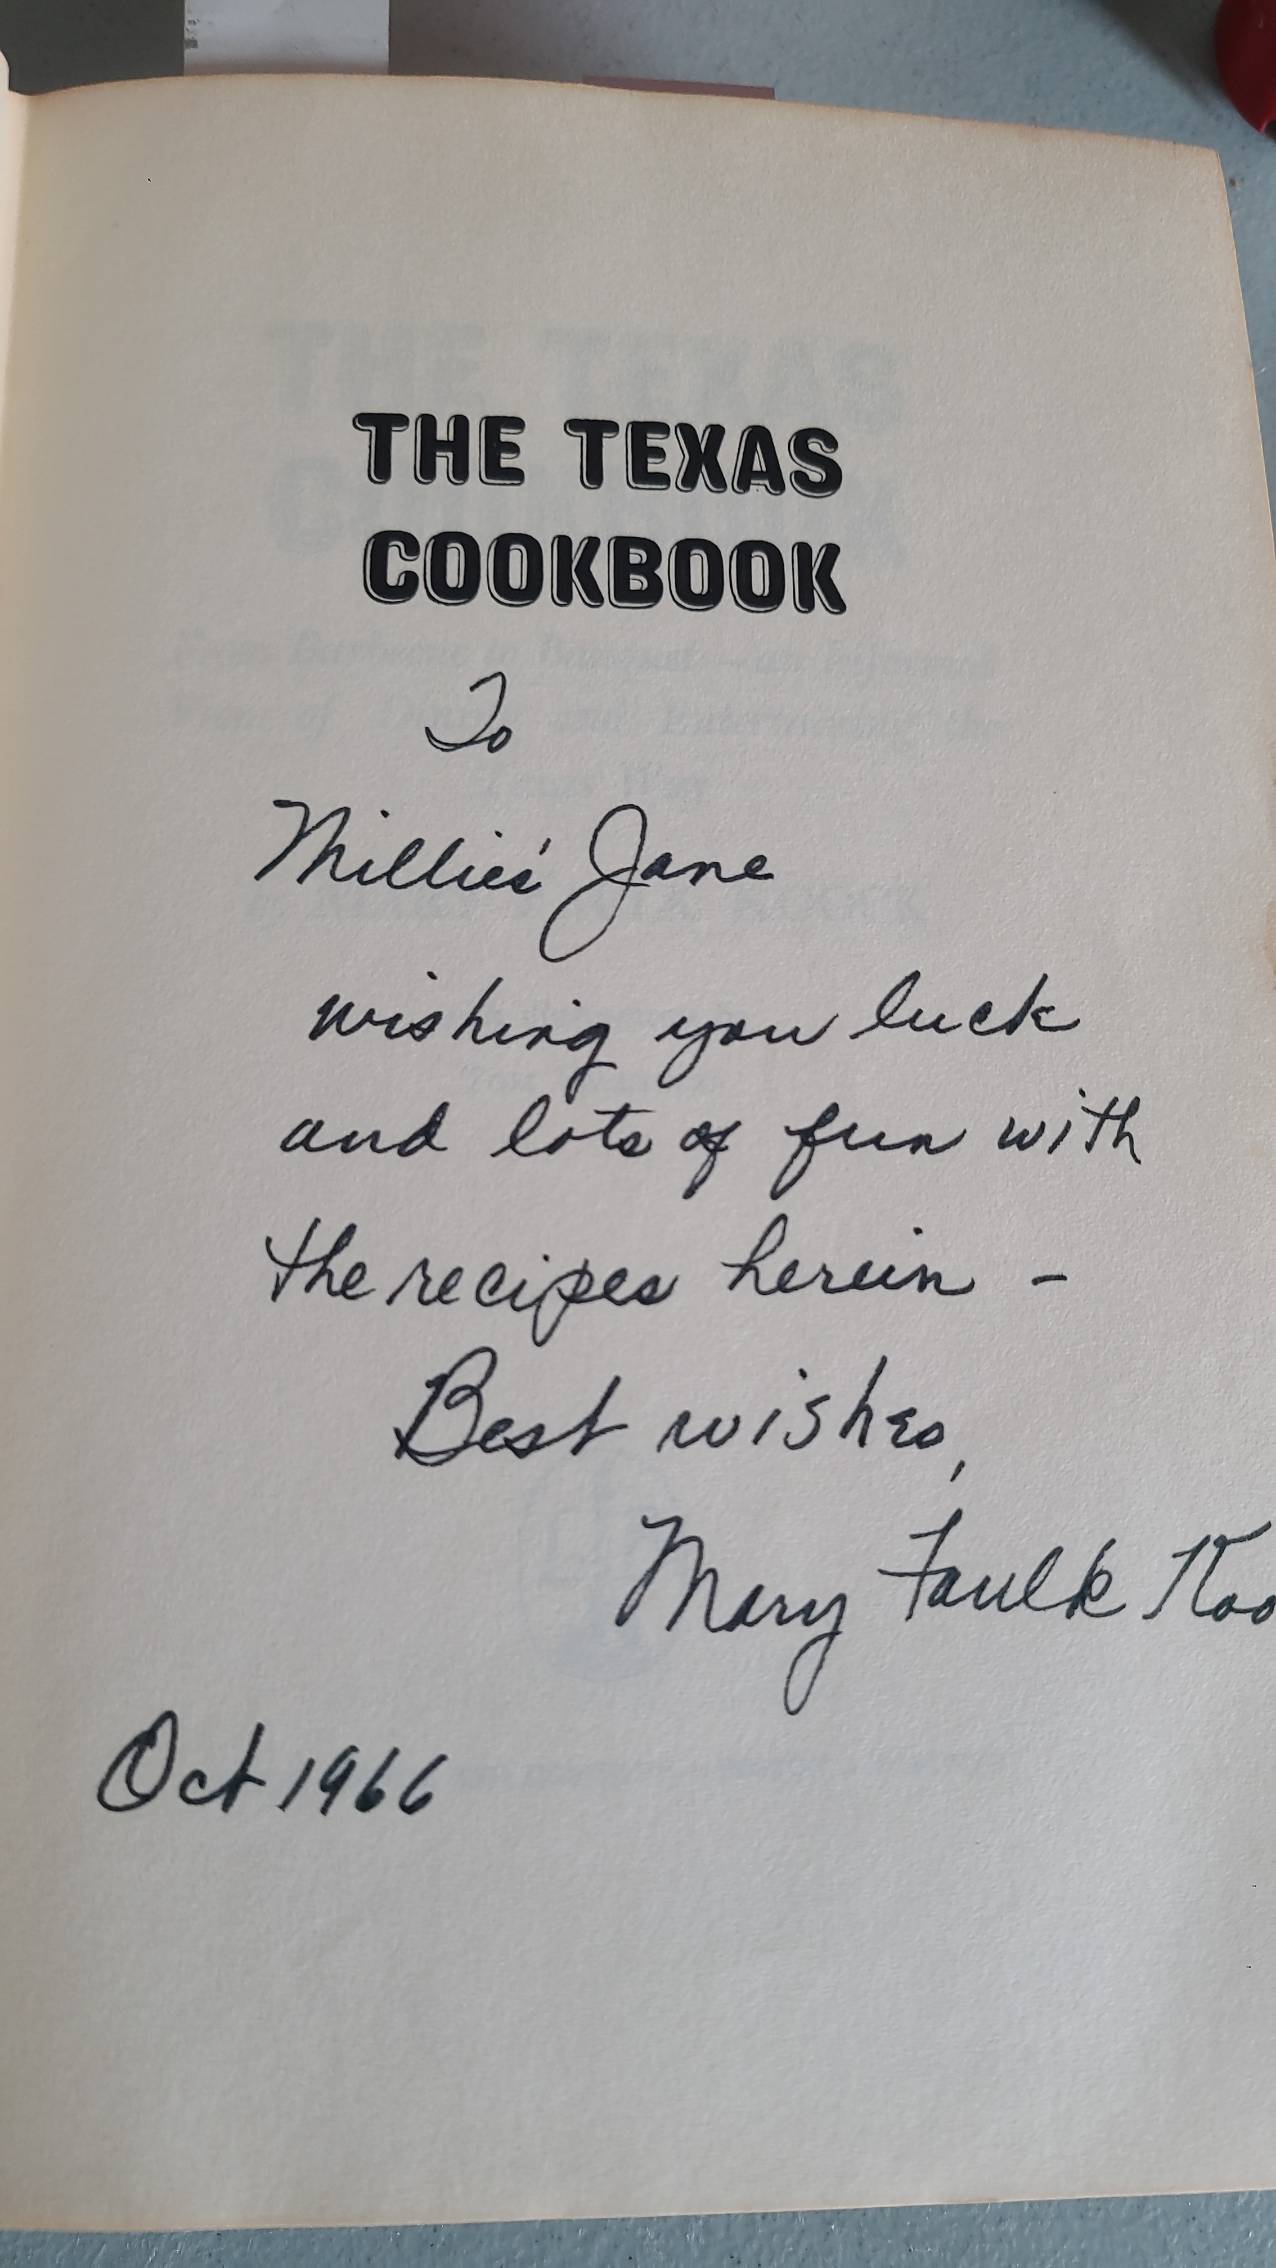 THE TEXAS
COOKBOOK
To
Millie's Jane
wishing you luck
and lots of fun with
the recipes herein -
Best wishes,
Mary Faulk Koo
Oct 1966